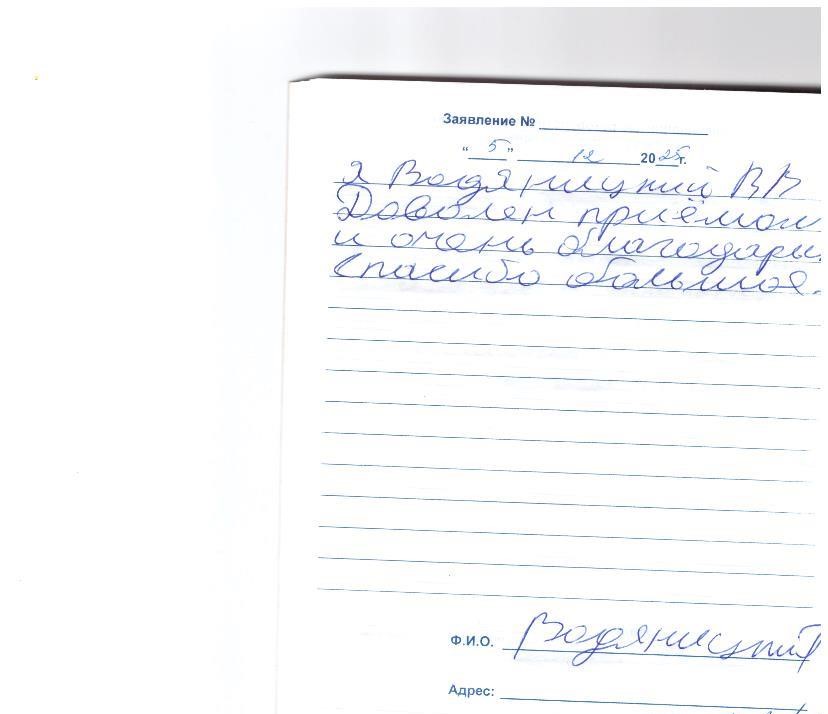 Заявление №
“ 5 ” 12 2025г.
я Водяницкий ВВ
Доволен приёмом
и очень благодарен.
Спасибо большое.
Ф.И.О. Водяницкий
Адрес: